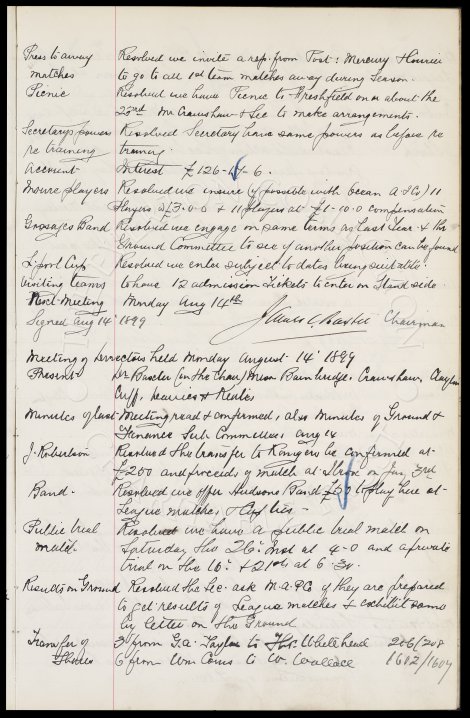 Press to away Resolved we invite a rep. from Post: Mercury & Courier
matches to go to all 1st team matches away during Season.
Picnic Resolved we have Picnic to Freshfield on or about the
23rd Mr Crawshaw & Sec to make arrangements.
Secretarys powers Resolved Secretary have same powers as before re
re training training.
Account Interest £126- -6.
Insure players Resolved we insure (if possible with Ocean A & Co) 11
Players at £3-0-0 & 11 players at £1-10-0 compensation
Grosages Band Resolved we engage on same terms as last year & the
Ground Committee to see if another position can be found
L'pool Cup Resolved we enter subject to dates being suitable.
Visiting teams to have 12 admission tickets to enter on Stand side.
Next Meeting Monday Aug 14th
Signed Aug 14' 1899 James C Baxter Chairman
Meeting of Directors held Monday August 14' 1899
Present Dr Baxter (in the chair) Messrs Bainbridge, Crawshaw, Clayton
Cuff, & Keates
Minutes of last Meeting read & confirmed, also Minutes of Ground &
Finance Sub Committees Aug 14
J. Robertson Resolved the transfer to Rangers be confirmed at
£200 and proceeds of match at Ibrox on Jan 3rd
Band. Resolved we offer Hudsons Band to play here at
League matches & Cup ties.
Public trial Resolved we have a public trial match on
match. Saturday the 26' Inst at 4-0 and a private
trial on the 16' & 21st at 6
Results on Ground Resolved the Sec. ask M.A.P.Co if they are prepared
to get results of League matches & exhibit same
by letter on the Ground
Transfer of 3 from G.A. Taylor to Thos. Whitehead 206/208
Shares 6 from Wm to W. Wallace 1602/1607